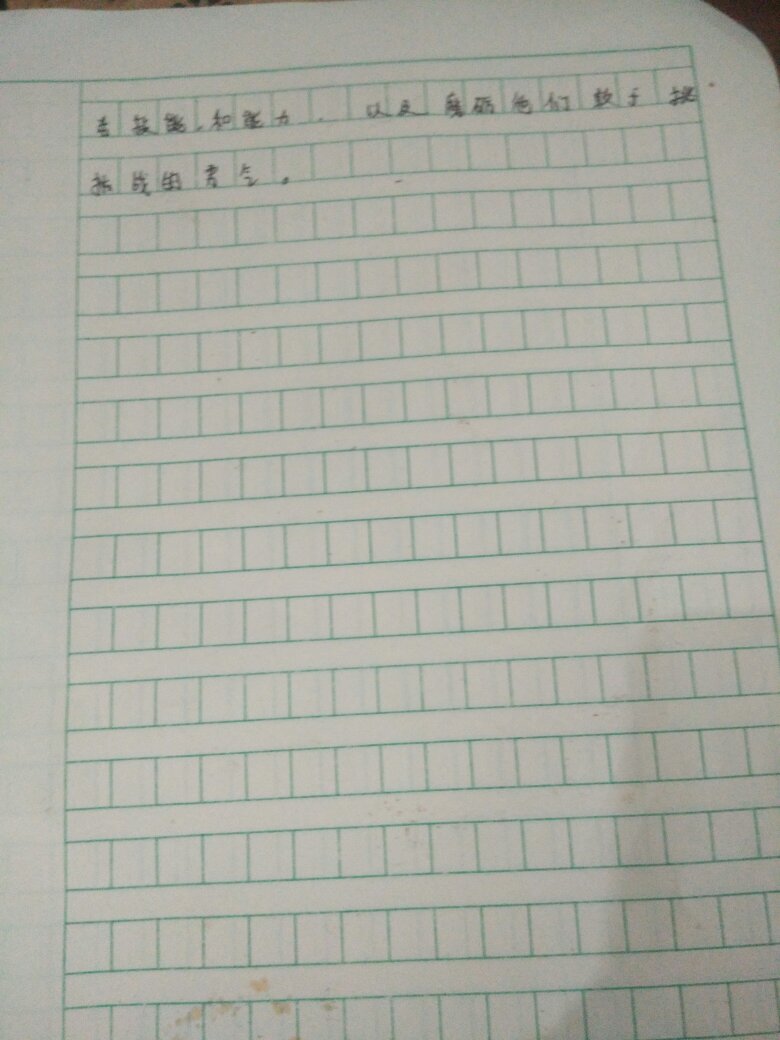 专技能,和能力.以及磨砺他们敢于挑
挑战的勇气。